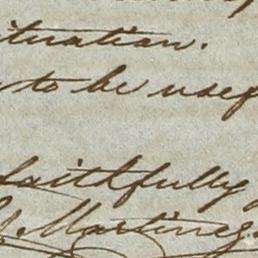 ituation.
to be usef
faithfully
Martinez.